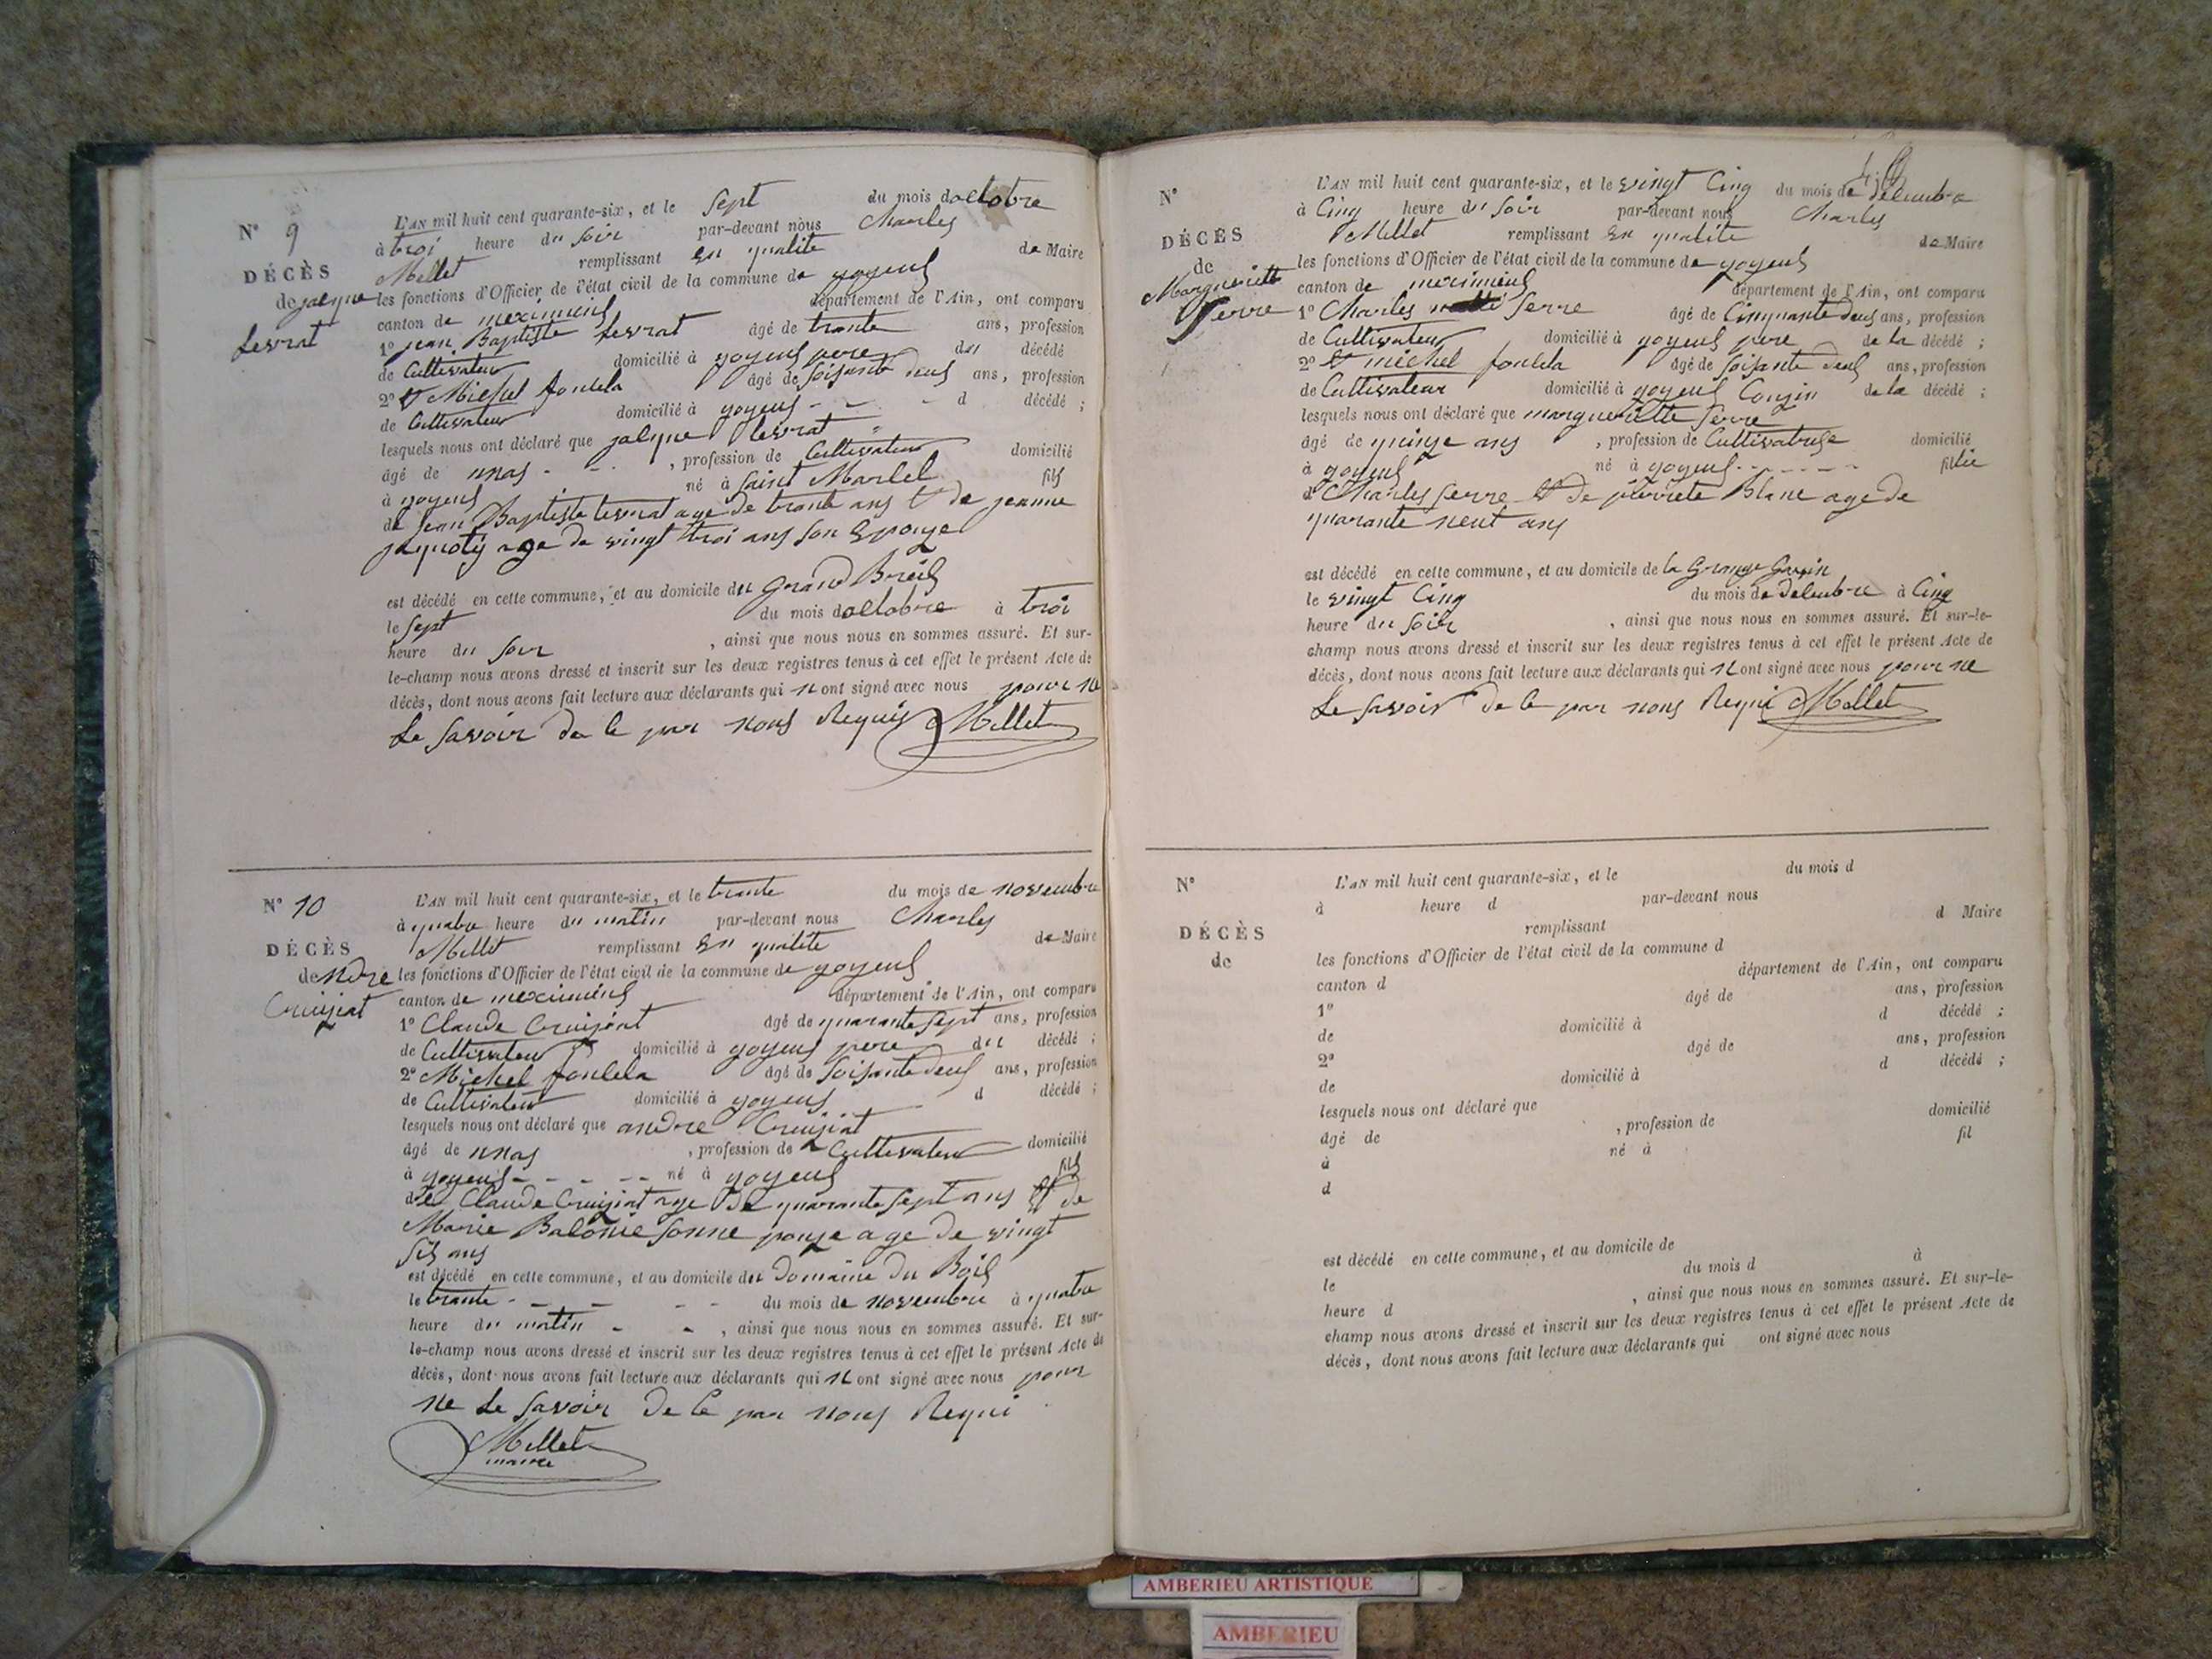 N° 9
DÉCÈS
de jacque
Levrat
L'AN mil huit cent quarante-six, et le Sept du mois doctobre
à troi heure du Soir par-devant nous Charles
Millet remplissant En qualite de Maire
les fonctions d'Officier de l'état civil de la commune de joyeux
canton de meximieux département de l'Ain, ont comparu
1° jean Baptiste Levrat âgé de trante ans, profession
de Cultivateur domicilié à joyeux pere du décédé
2° et Michel âgé de Soisante deux ans, profession
de Cultivateur domicilié à joyeux - - - d décédé ;
lesquels nous ont déclaré que jacque levrat
âgé de - - , profession de Cultivateur domicilié
à joyeux né à Saint Marcel fils
de jean Baptiste levrat age de trante ans et de jeanne
age de vingt troi ans son Epouse
est décédé en cette commune, et au domicile du grand
le Sept du mois doctobre à troi
heure du Soir , ainsi que nous nous en sommes assuré. Et sur-
le-champ nous avons dressé et inscrit sur les deux registres tenus à cet effet le présent Acte de
décès, dont nous avons fait lecture aux déclarants qui n ont signé avec nous pour ne
Le Savoir de ce par nous Requis Millet
N° 10
DÉCÈS
de ndre
Cruiziat
L'AN mil huit cent quarante-six, et le trante du mois de novembre
à quatre heure du matin par-devant nous Charles
Millet remplissant En qualite de Maire
les fonctions d'Officier de l'état civil de la commune de joyeux
canton de meximieux département de l'Ain, ont comparu
1° Claude Cruiziat âgé de quarante Sept ans, profession
de Cultivateur domicilié à joyeux pere du décédé ;
2° Michel âgé de Soisante deux ans, profession
de Cultivateur domicilié à joyeux d décédé ;
lesquels nous ont déclaré que andre Cruiziat
âgé de , profession de Cultivateur domicilié
à joyeux - - - - né à joyeux fils
de Claude Cruiziat age de quarante Sept ans et de
Marie Sonne age de vingt
Six ans
est décédé en cette commune, et au domicile du Domaine du Bois
le trante - - - - - du mois de novembre à quatre
heure du matin - - , ainsi que nous nous en sommes assuré. Et sur-
le-champ nous avons dressé et inscrit sur les deux registres tenus à cet effet le présent Acte de
décès, dont nous avons fait lecture aux déclarants qui n ont signé avec nous pour
ne Le Savoir de ce par nous Requi
Millet
maire
N°
DÉCÈS
de
Margueritte
Serre
L'AN mil huit cent quarante-six, et le vingt Cinq du mois de decembre
à Cinq heure du Soir par-devant nous Charles
Millet remplissant En qualite de Maire
les fonctions d'Officier de l'état civil de la commune de joyeux
canton de meximieux département de l'Ain, ont comparu
1° Charles Serre âgé de Cinquante deux ans, profession
de Cultivateur domicilié à joyeux pere de la décédé ;
2° et michel âgé de Soisante deux ans, profession
de Cultivateur domicilié à joyeux Cousin de la décédé ;
lesquels nous ont déclaré que margueritte Serre
âgé de quinze ans , profession de Cultivatrice domicilié
à joyeux né à joyeux - - - - - fille
d Charles Serre et de pierrete Blanc age de
quarante neuf ans
est décédé en cette commune, et au domicile de la Grange
le vingt Cinq du mois de decembre à Cinq
heure du Soir , ainsi que nous nous en sommes assuré. Et sur-le-
champ nous avons dressé et inscrit sur les deux registres tenus à cet effet le présent Acte de
décès, dont nous avons fait lecture aux déclarants qui n ont signé avec nous pour ne
Le Savoir de ce par nous Requi Millet
N°
DÉCÈS
de
L'AN mil huit cent quarante-six, et le du mois d
à heure d par-devant nous
remplissant d Maire
les fonctions d'Officier de l'état civil de la commune d
canton d département de l'Ain, ont comparu
1° âgé de ans, profession
de domicilié à d décédé ;
2° âgé de ans, profession
de domicilié à d décédé ;
lesquels nous ont déclaré que
âgé de , profession de domicilié
à né à fil
d
est décédé en cette commune, et au domicile de
le du mois d à
heure d , ainsi que nous nous en sommes assuré. Et sur-le-
champ nous avons dressé et inscrit sur les deux registres tenus à cet effet le présent Acte de
décès, dont nous avons fait lecture aux déclarants qui ont signé avec nous
AMBERIEU ARTISTIQUE
AMBERIEU